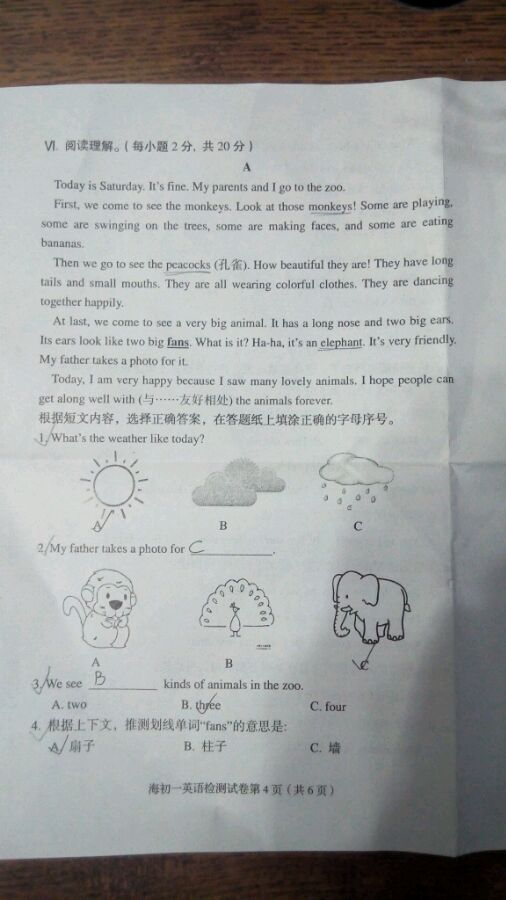 Ⅵ. 阅读理解。（每小题 2 分，共 20 分）
A
Today is Saturday. It's fine. My parents and I go to the zoo.
First, we come to see the monkeys. Look at those monkeys! Some are playing,
some are swinging on the trees, some are making faces, and some are eating
bananas.
Then we go to see the peacocks (孔雀). How beautiful they are! They have long
tails and small mouths. They are all wearing colorful clothes. They are dancing
together happily.
At last, we come to see a very big animal. It has a long nose and two big ears.
Its ears look like two big fans. What is it? Ha-ha, it's an elephant. It's very friendly.
My father takes a photo for it.
Today, I am very happy because I saw many lovely animals. I hope people can
get along well with (与……友好相处) the animals forever.
根据短文内容，选择正确答案，在答题纸上填涂正确的字母序号。
1. What's the weather like today?
A B C
2. My father takes a photo for C .
A B C
3. We see B kinds of animals in the zoo.
A. two B. three C. four
4. 根据上下文，推测划线单词“fans”的意思是:
A. 扇子 B. 柱子 C. 墙
海初一英语检测试卷第 4 页（共 6 页）